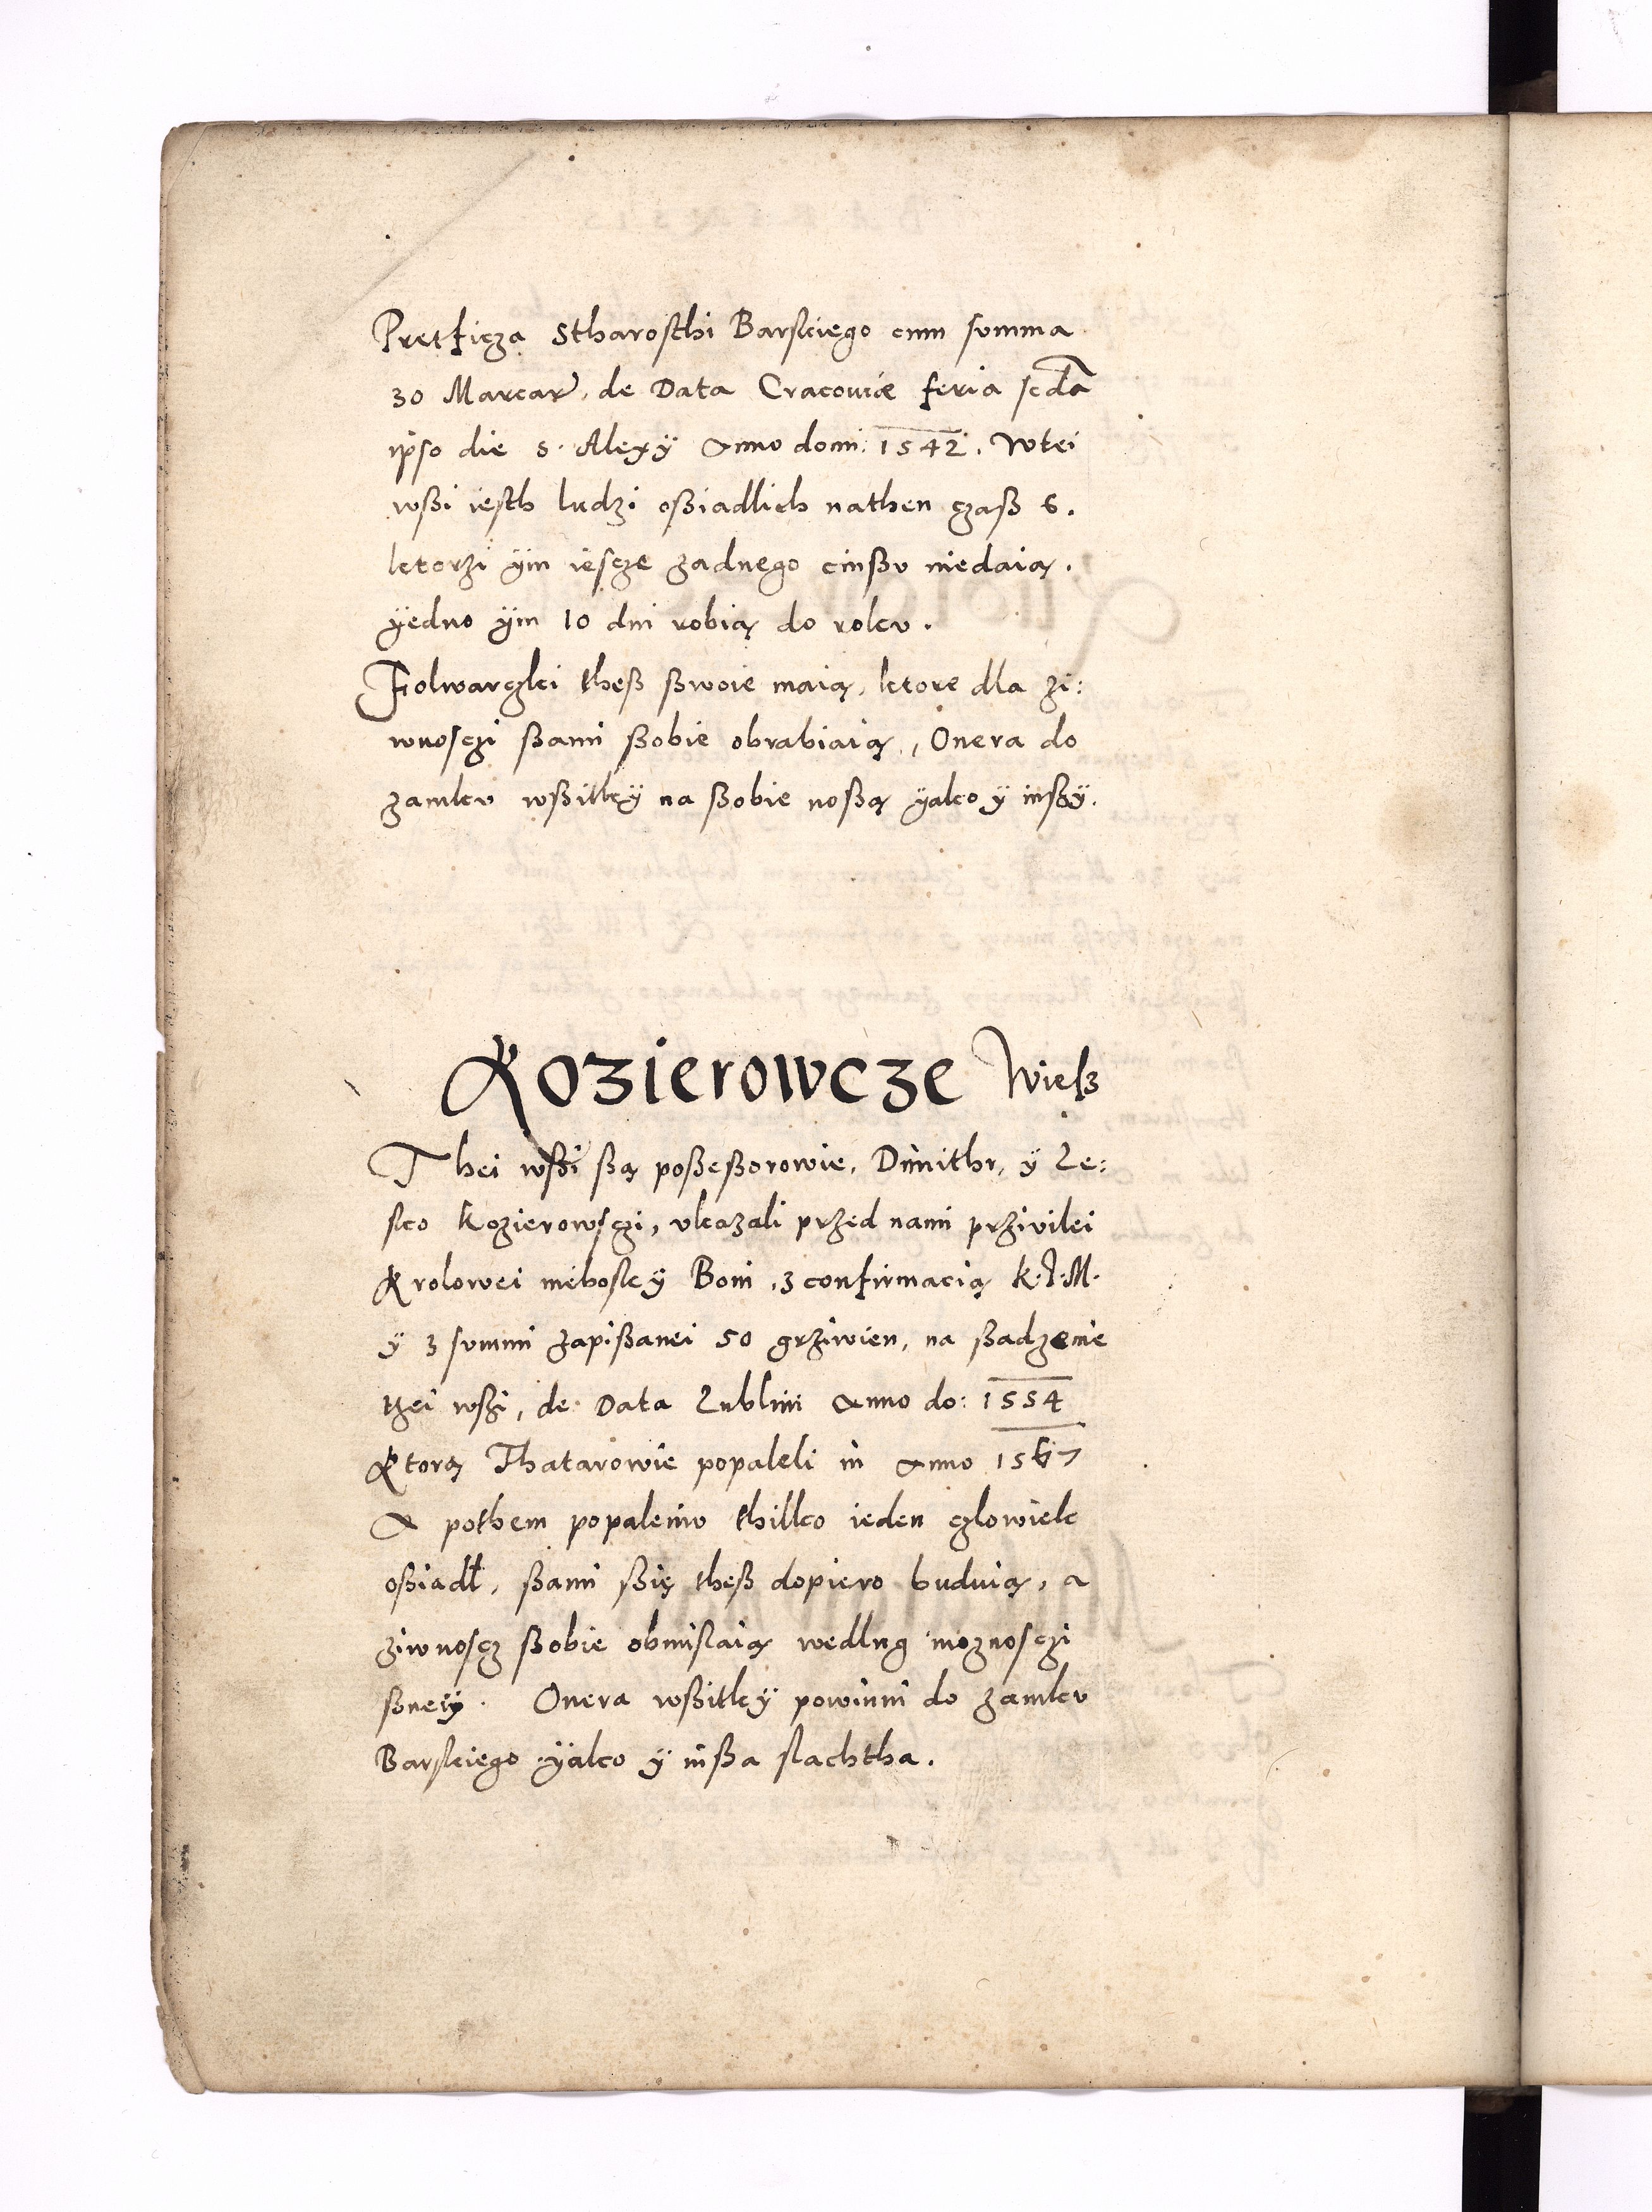 Pretficza Stharosthi Barskiego cum summa
30 Marcar. de Data Cracouiæ feria scda
ipso die s. Alexÿ Anno domi: 1542. Wtei
wßi iesth ludzi oßiadlich nathen czaß 6.
ktorzi ÿm iescze zadnego cinßu niedaią.
ÿedno ÿm 10 dni robią do roku.
Folwarczki theß ßwoie maią, ktore dla zi:
wnosczi ßami ßobie obrabiaią, Onera do
zamku wßitkÿ na ßobie noßą ÿako ÿ inßÿ.
Kozierowcze Wieß
Thei wßi ßą poßeßorowie, Dimithr, ÿ Le:
sko Kozierowsczi, ukazali przed nami przivilei
Krolowei nieboskÿ Boni, z confirmacią K.J.M.
ÿ z summi zapißanei 50 grziwien, na ßadzenie
thei wßi, de Data Lublini Anno do: 1554
Ktorą Thatarowie popaleli in Anno 1567
A pothem popaleniu thilko ieden czlowiek
oßiadł, ßami ßię theß dopiero buduią, a
ziwnoscz ßobie obmislaią wedlug moznosczi
ßweÿ. Onera wßitkÿ powinni do zamku
Barskiego ÿako ÿ inßa slachtha.